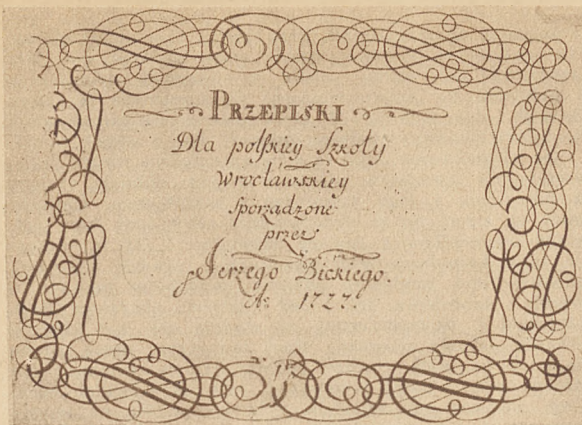 PRZEPISKI
Dla polskiey Szkoły
Wrocławskiey
sporządzone
przez
Jerzego Bickiego.
Aᵒ 1727.